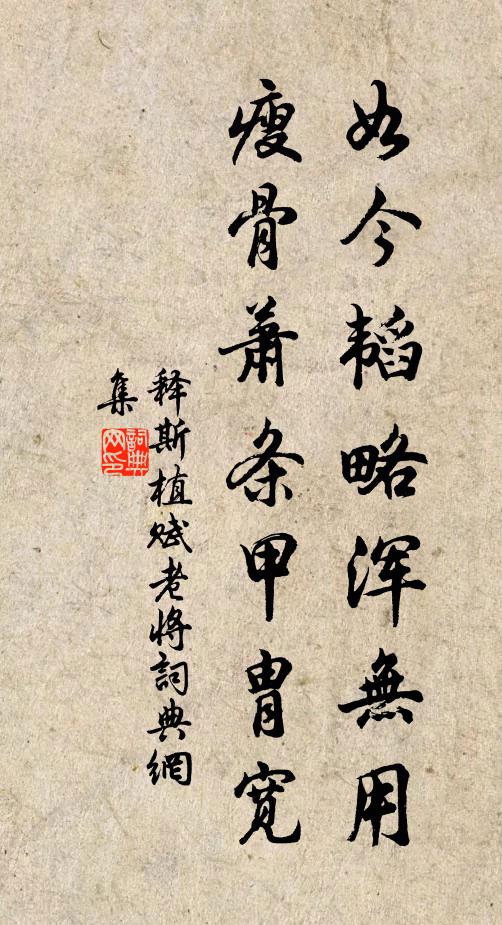 如今韬略浑無用
瘦骨萧条甲胄宽
释斯植赋老将詞典網
集
詞典
网印